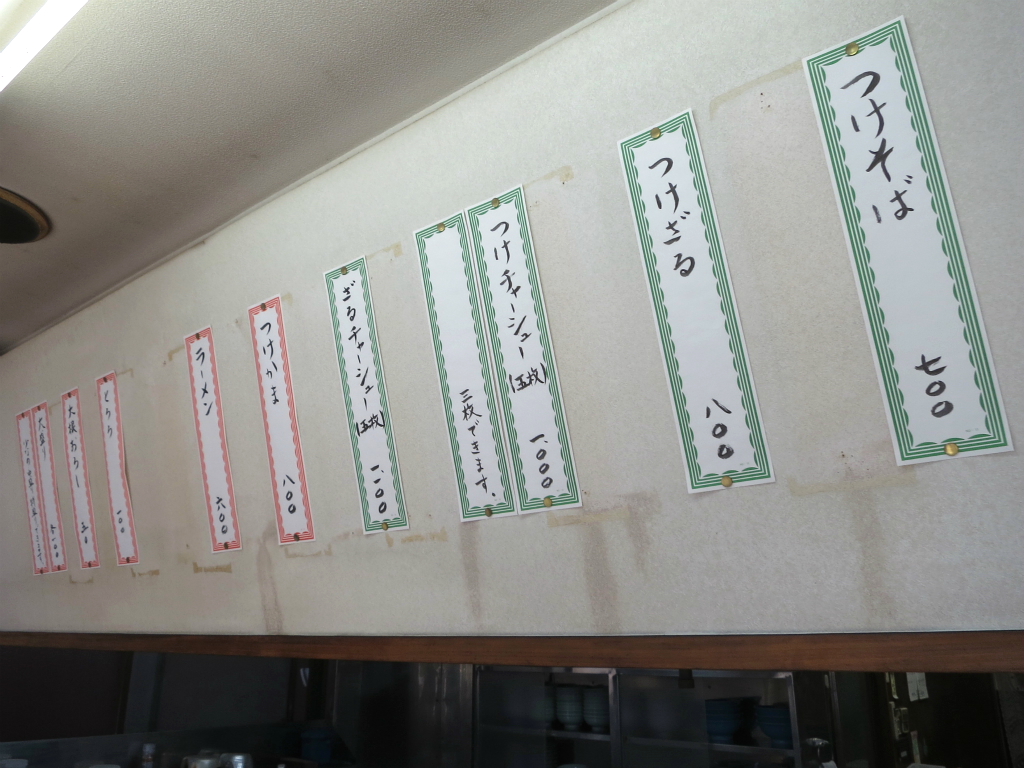 つけそば 七〇〇
つけざる 八〇〇
つけチャーシュー(五枚) 一、〇〇〇
三枚できます。
ざるチャーシュー(五枚) 一、一〇〇
つけかま 八〇〇
ラーメン 六〇〇
とろろ 一〇〇
大根おろし 五〇
大盛り